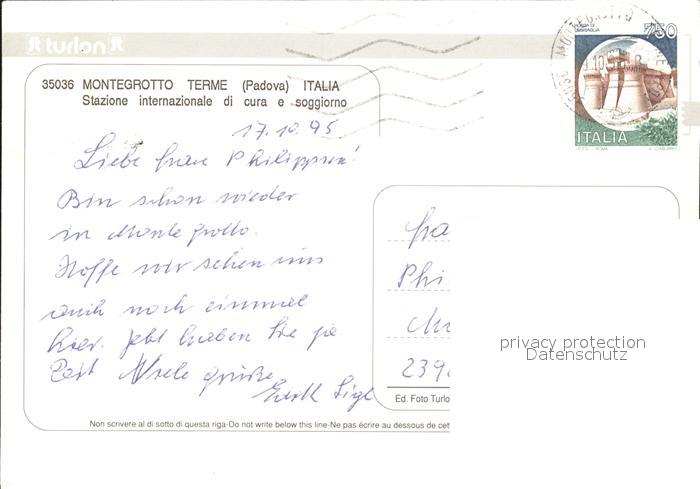 turlon
35036 MONTEGROTTO TERME (Padova) ITALIA
Stazione internazionale di cura e soggiorno
17.10.95
Liebe Frau Philippsen!
Bin schon wieder
in Montegrotto.
Hoffe wir sehen uns
auch noch einmal
hier. Jetzt haben Sie ja
Zeit Viele Grüße
750
ROCCA DI URBISAGLIA
ITALIA
I.P.Z.S. - ROMA
MONTEGROTTO
Fra
Phi
239
privacy protection
Datenschutz
Ed. Foto Turlo
Non scrivere al di sotto di questa riga-Do not write below this line-Ne pas écrire au dessous de cet